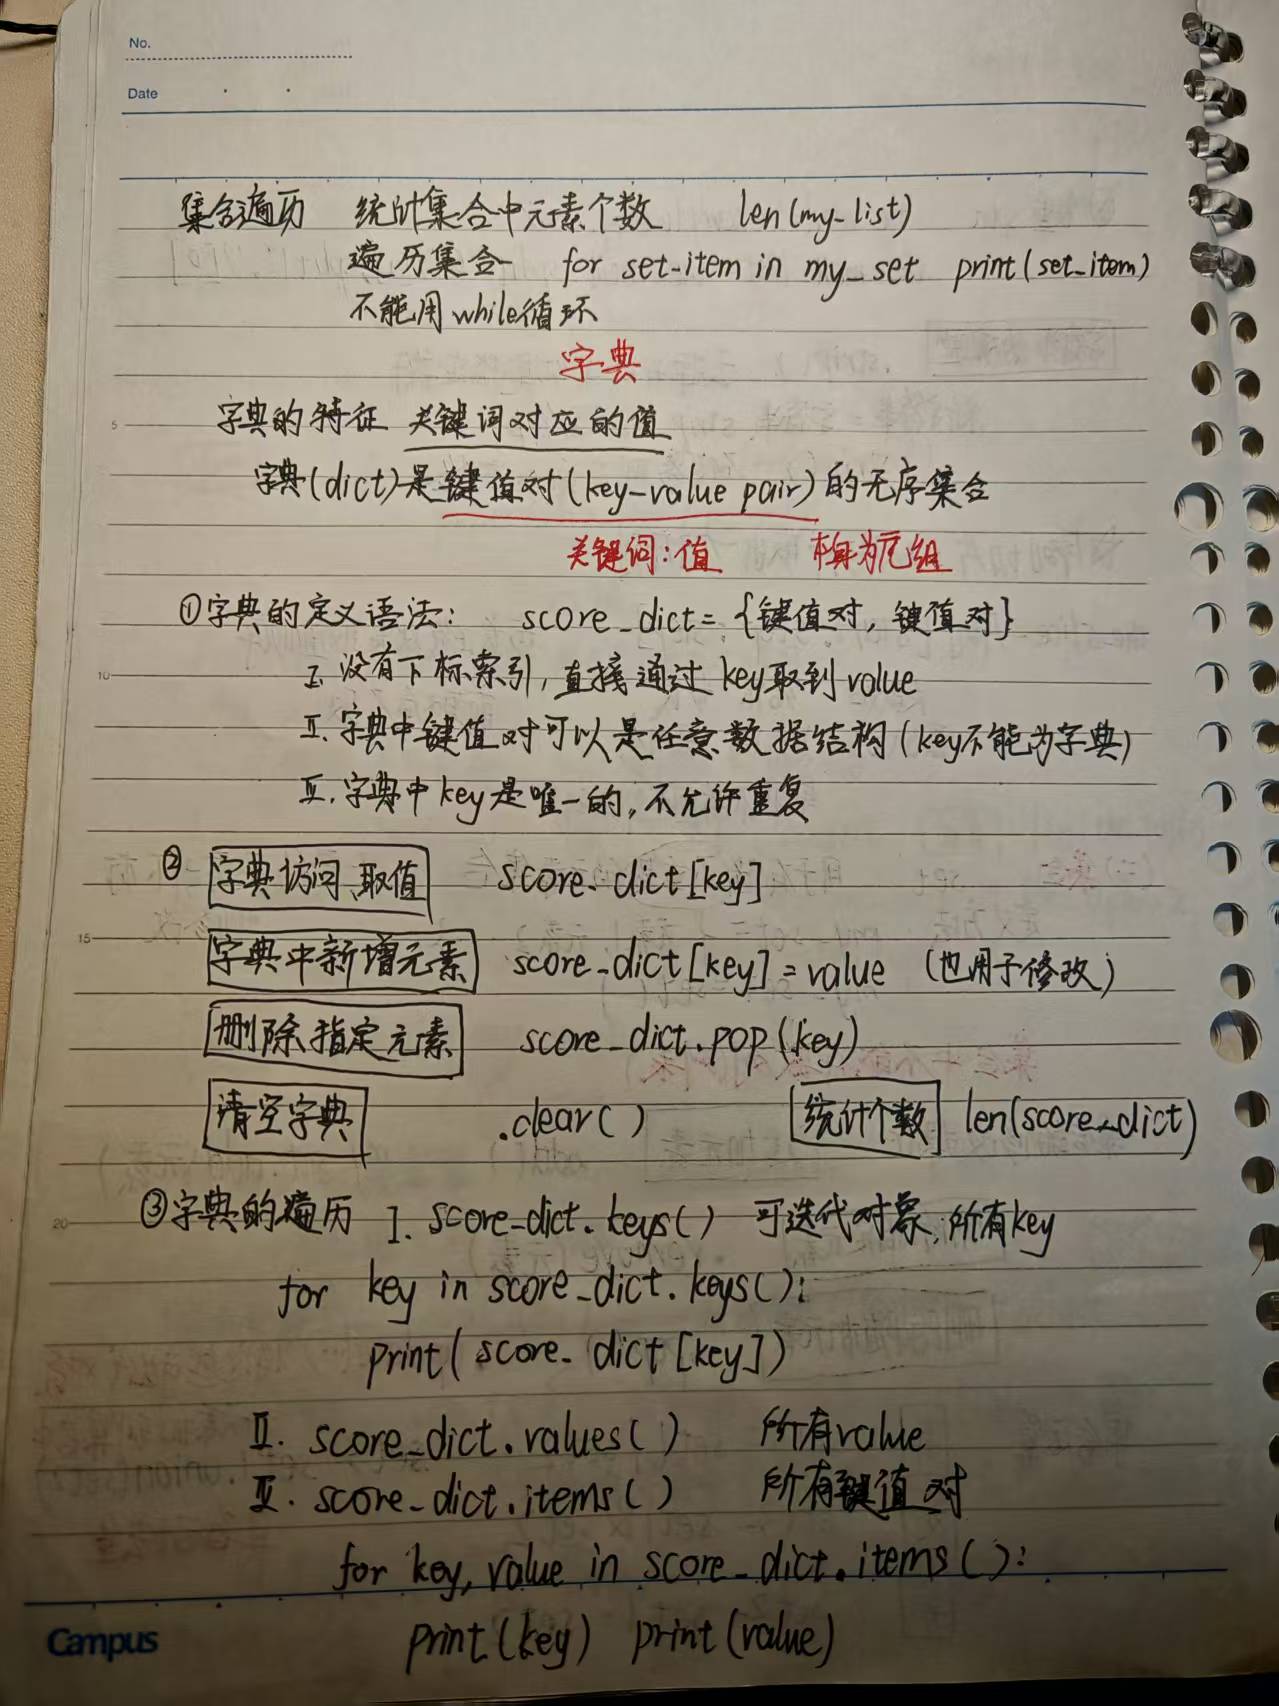 No.
Date
集合遍历 统计集合中元素个数 len(my-list)
遍历集合 for set-item in my_set print(set_item)
不能用while循环
字典
字典的特征 关键词对应的值
字典(dict)是键值对(key-value pair)的无序集合
关键词:值 本身为元组
①字典的定义语法: score_dict = {键值对, 键值对}
I. 没有下标索引, 直接通过 key取到value
II. 字典中键值对可以是任意数据结构(key不能为字典)
III. 字典中key是唯一的, 不允许重复
② 字典访问、取值 score_dict[key]
15 字典中新增元素 score_dict[key] = value (也用于修改)
删除指定元素 score_dict.pop(key)
清空字典 .clear() 统计个数 len(score_dict)
20 ③字典的遍历 I. score_dict.keys() 可迭代对象, 所有key
for key in score_dict.keys():
print(score_dict[key])
II. score_dict.values() 所有value
III. score_dict.items() 所有键值对
for key, value in score_dict.items():
Campus print(key) print(value)